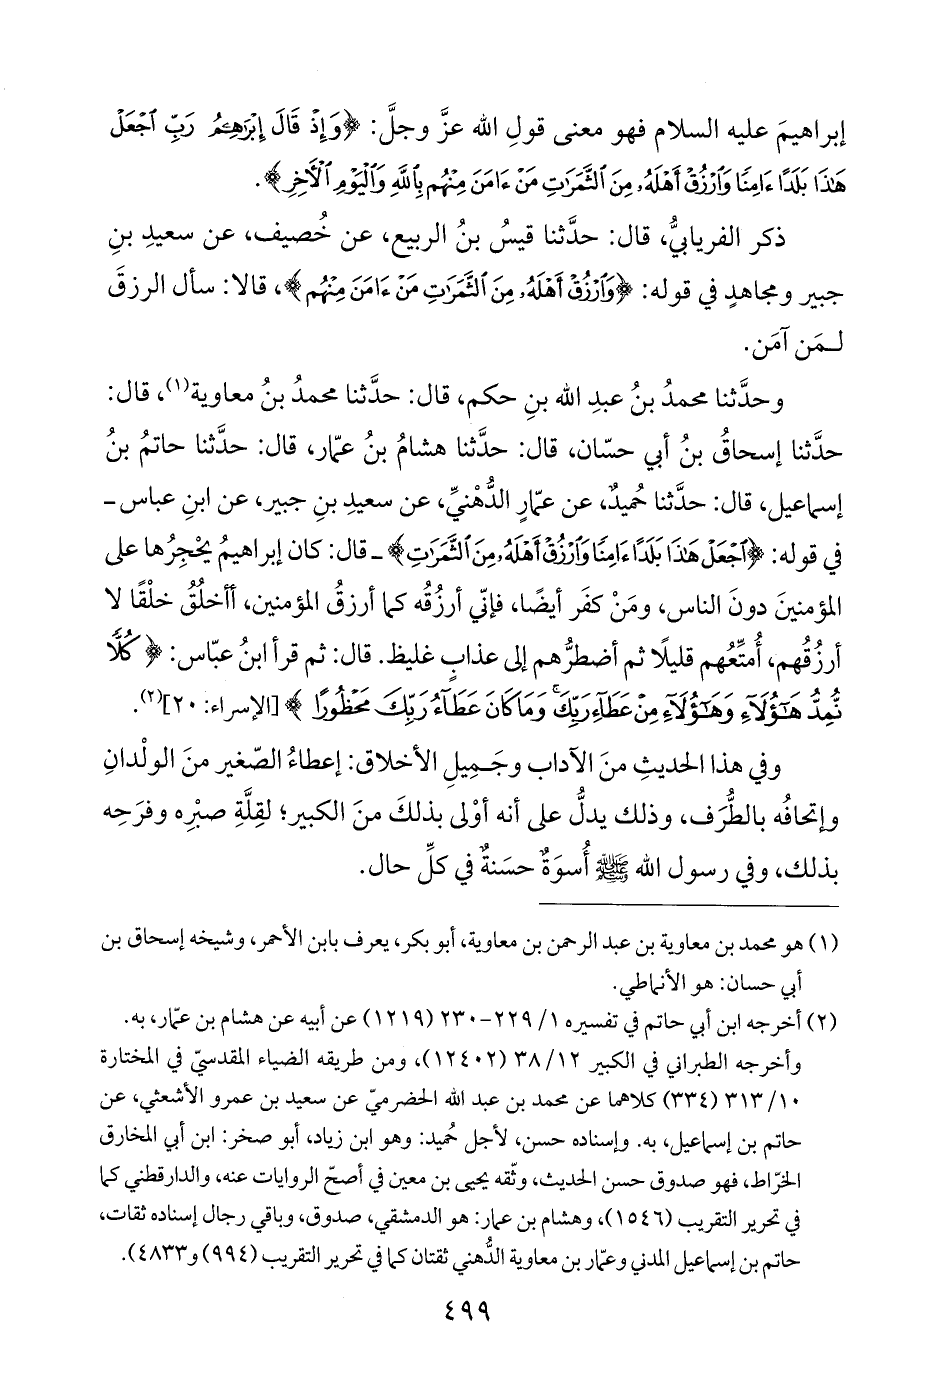 إبراهيمَ عليه السلام فهو معنى قولِ الله عزَّ وجلَّ: ﴿وَإِذْ قَالَ إِبْرَٰهِـۧمُ رَبِّ ٱجْعَلْ
هَـٰذَا بَلَدًا ءَامِنًا وَٱرْزُقْ أَهْلَهُۥ مِنَ ٱلثَّمَرَٰتِ مَنْ ءَامَنَ مِنْهُم بِٱللَّهِ وَٱلْيَوْمِ ٱلْـَٔاخِرِ﴾.
ذكر الفريابيُّ، قال: حدَّثنا قيسُ بنُ الربيع، عن خُصيف، عن سعيدِ بنِ
جبير ومجاهدٍ في قوله: ﴿وَٱرْزُقْ أَهْلَهُۥ مِنَ ٱلثَّمَرَٰتِ مَنْ ءَامَنَ مِنْهُم﴾، قالا: سأل الرزقَ
لـمَن آمَن.
وحدَّثنا محمدُ بنُ عبدِ الله بنِ حكم، قال: حدَّثنا محمدُ بنُ معاوية(١)، قال:
حدَّثنا إسحاقُ بنُ أبي حسّان، قال: حدَّثنا هشامُ بنُ عمّار، قال: حدَّثنا حاتمُ بنُ
إسماعيل، قال: حدَّثنا حُميدٌ، عن عمّارٍ الدُّهْنيِّ، عن سعيدِ بنِ جبير، عن ابنِ عباس ـ
في قوله: ﴿ٱجْعَلْ هَـٰذَا بَلَدًا ءَامِنًا وَٱرْزُقْ أَهْلَهُۥ مِنَ ٱلثَّمَرَٰتِ﴾ ـ قال: كان إبراهيمُ يحْجِرُها على
المؤمنينَ دونَ الناس، ومَنْ كفَر أيضًا، فإنّي أرزُقُه كما أرزقُ المؤمنين، أأخلُقُ خلْقًا لا
أرزُقُهم، أُمتِّعُهم قليلًا ثم أضطرُّهم إلى عذابٍ غليظ. قال: ثم قرأ ابنُ عبّاس: ﴿كُلًّا
نُّمِدُّ هَـٰٓؤُلَآءِ وَهَـٰٓؤُلَآءِ مِنْ عَطَآءِ رَبِّكَ ۚ وَمَا كَانَ عَطَآءُ رَبِّكَ مَحْظُورًا﴾ [الإسراء: ٢٠](٢).
وفي هذا الحديثِ منَ الآداب وجَـميلِ الأخلاق: إعطاءُ الصّغير منَ الولْدانِ
وإتحافُه بالطُّرَف، وذلك يدلُّ على أنه أوْلى بذلكَ منَ الكبير؛ لقِلَّةِ صبْرِه وفرَحِه
بذلك، وفي رسول الله ﷺ أُسوَةٌ حسَنةٌ في كلِّ حال.
(١) هو محمد بن معاوية بن عبد الرحمن بن معاوية، أبو بكر، يعرف بابن الأحمر، وشيخه إسحاق بن
أبي حسان: هو الأنماطي.
(٢) أخرجه ابن أبي حاتم في تفسيره ١/ ٢٢٩-٢٣٠ (١٢١٩) عن أبيه عن هشام بن عمّار، به.
وأخرجه الطبراني في الكبير ١٢/ ٣٨ (١٢٤٠٢)، ومن طريقه الضياء المقدسيّ في المختارة
١٠/ ٣١٣ (٣٣٤) كلاهما عن محمد بن عبد الله الحضرميّ عن سعيد بن عمرو الأشعثي، عن
حاتم بن إسماعيل، به. وإسناده حسن، لأجل حُميد: وهو ابن زياد، أبو صخر: ابن أبي المخارق
الخرّاط، فهو صدوق حسن الحديث، وثّقه يحيى بن معين في أصحّ الروايات عنه، والدارقطني كما
في تحرير التقريب (١٥٤٦)، وهشام بن عمار: هو الدمشقي، صدوق، وباقي رجال إسناده ثقات،
حاتم بن إسماعيل المدني وعمّار بن معاوية الدُّهني ثقتان كما في تحرير التقريب (٩٩٤) و٤٨٣٣).
٤٩٩